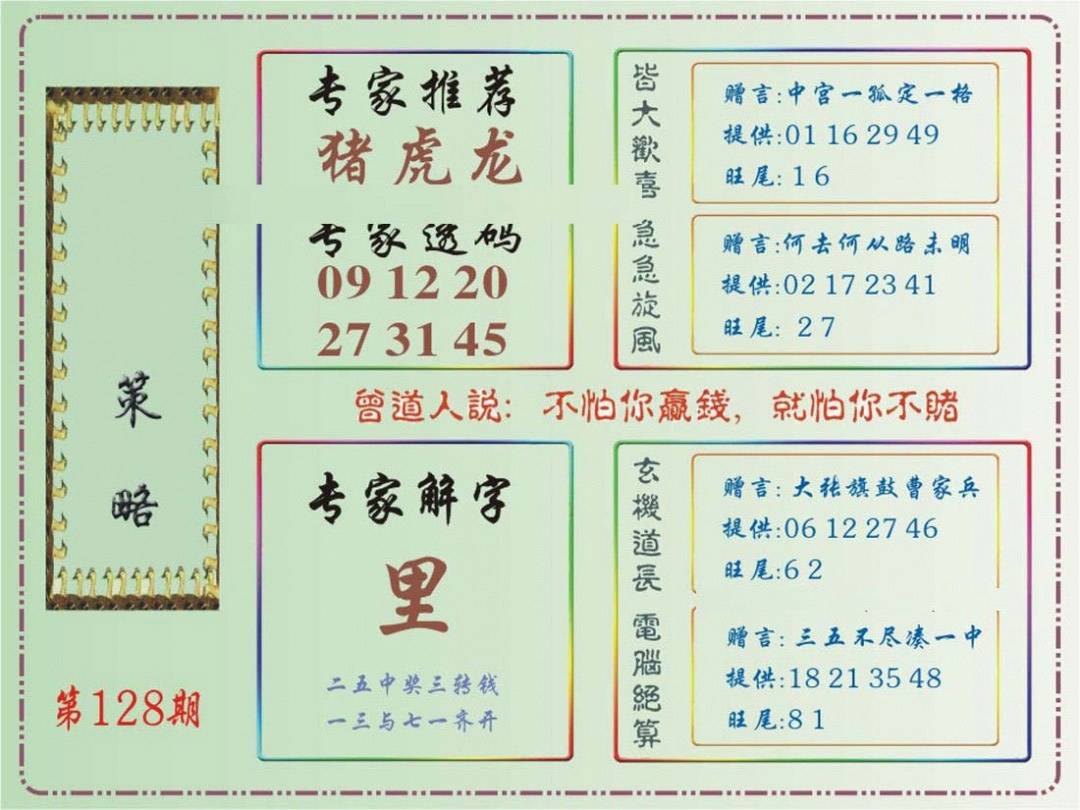 策略
第128期
专家推荐
猪虎龙
专家透码
09 12 20
27 31 45
皆大歡喜
赠言:中宫一孤定一格
提供:01 16 29 49
旺尾: 1 6
急急旋風
赠言:何去何从路未明
提供:02 17 23 41
旺尾: 2 7
曾道人説: 不怕你贏錢, 就怕你不賭
专家解字
里
二五中奖三转钱
一三与七一齐开
玄機道長
赠言: 大张旗鼓曹家兵
提供:06 12 27 46
旺尾:6 2
電腦絕算
赠言: 三五不尽凑一中
提供:18 21 35 48
旺尾:8 1